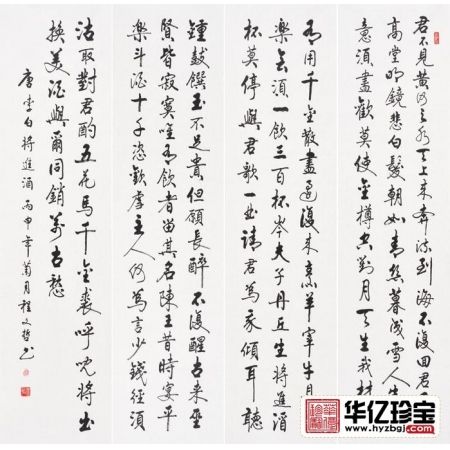 君不見黄河之水天上来奔流到海不復回君不
高堂明鏡悲白髮朝如青絲暮成雪人生
意須盡歡莫使金樽空對月天生我材
有用千金散盡還復来烹羊宰牛且
樂會須一飲三百杯岑夫子丹丘生將進酒
杯莫停與君歌一曲請君爲我傾耳聽
鍾鼓饌玉不足貴但願長醉不復醒古来聖
賢皆寂寞唯有飲者留其名陳王昔時宴平
樂斗酒十千恣歡主人何爲言少錢徑須
沽取對君酌五花馬千金裘呼児將出
換美酒與爾同銷萬古愁
唐李白將進酒丙申年菊月程文哲书
华亿珍宝
www.hyzbgj.com